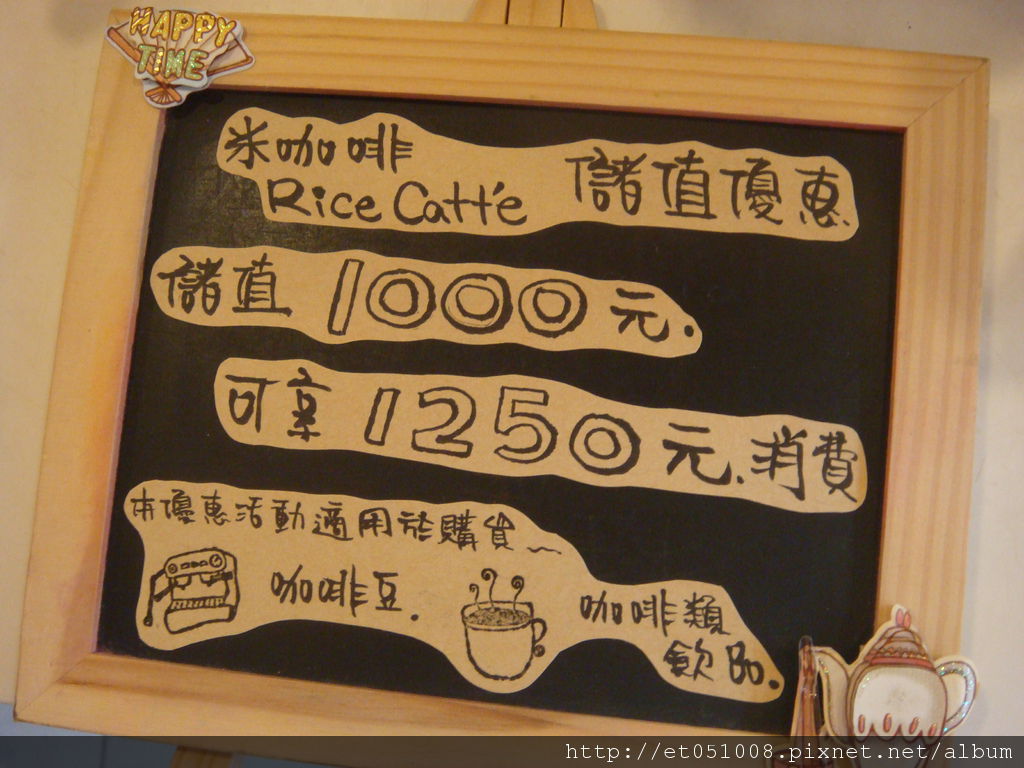 HAPPY
TIME
米咖啡
Rice Caffé
儲值優惠
儲值 1000 元.
可享 1250 元.消費
本優惠活動適用於購買~
咖啡豆.
咖啡類
飲品.
http://et051008.pixnet.net/album